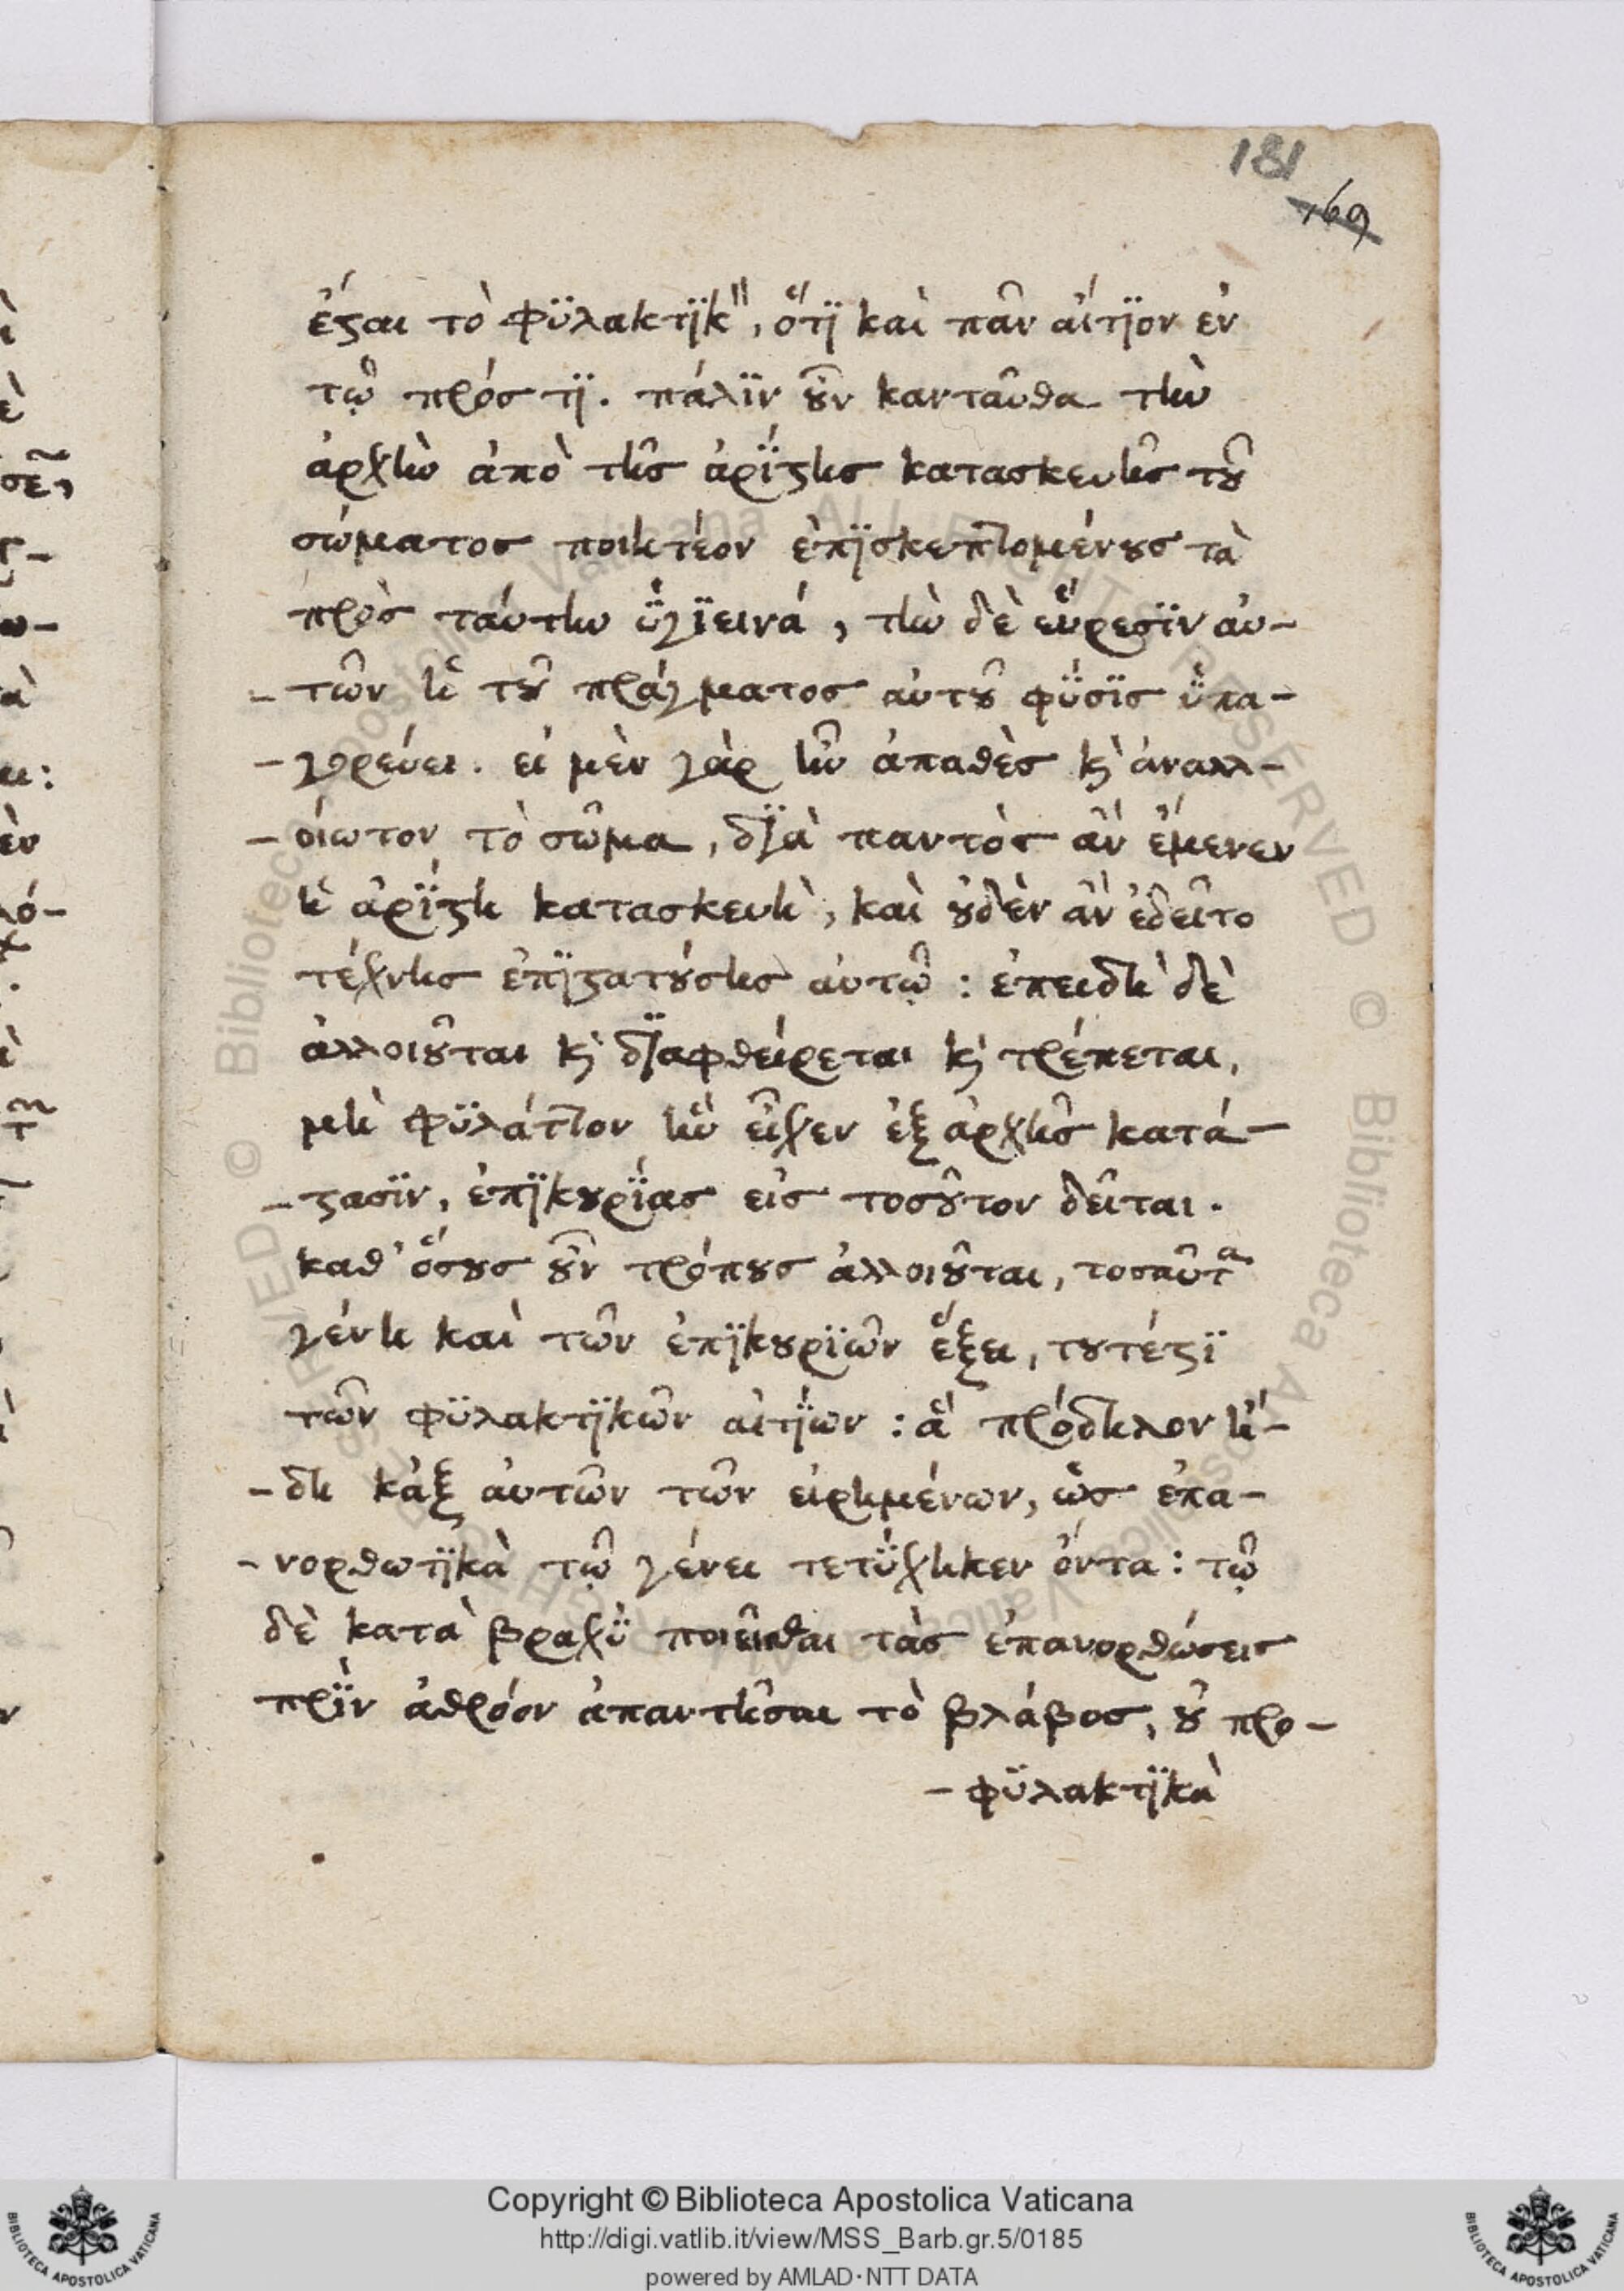 181
169
ἔσται τὸ φϋλακτϊκὸν, ὅτϊ καὶ πᾶν αἴτϊον ἐν
τῷ πρόσ τϊ. πάλϊν οὖν κανταῦθα τὴν
ἀρχὴν ἀπὸ τῆσ ἀρΐστησ κατασκευῆσ τοῦ
σώματοσ ποιητέον ἐπϊσκεπτομένουσ τὰ
πρὸσ ταύτην ὑ̈γϊεινά, τὴν δὲ εὕρεσϊν αὐ-
-τῶν ἡ τοῦ πράγματοσ αὐτοῦ φΰσϊσ ὑ̈πα-
-γορεύει. εἰ μὲν γὰρ ἦν ἀπαθὲσ κ̀ ἀναλλ-
-οίωτον τὸ σῶμα, δϊὰ παντὸσ ἂν ἔμενεν
ἡ ἀρΐστη κατασκευὴ, καὶ οὐδὲν ἂν ἐδεῖτο
τέχνησ ἐπϊστατούσησ αὐτῷ : ἐπειδὴ δὲ
ἀλλοιοῦται κ̀ δϊαφθείρεται κ̀ τρέπεται,
μὴ φϋλάττον ἣν εἶχεν ἐξ ἀρχῆσ κατά-
-στασϊν, ἐπϊκουρΐασ εἰσ τοσοῦτον δεῖται.
καθ' ὅσουσ οὖν τρόπουσ ἀλλοιοῦται, τοσαῦτα
γένη καὶ τῶν ἐπϊκουρϊῶν ἕξει, τουτέστϊ
τῶν φϋλακτϊκῶν αἰτΐων : ἃ πρόδηλον ἤ-
-δη κἀξ αὐτῶν τῶν εἰρημένων, ὡσ ἐπα-
-νορθωτϊκὰ τῷ γένει τετΰχηκεν ὄντα : τῷ
δὲ κατὰ βραχὺ̈ ποιεῖσθαι τὰσ ἐπανορθώσεισ
πρῒν ἀθρόον ἀπαντῆσαι τὸ βλάβοσ, οὐ προ-
-φϋλακτϊκὰ
Copyright © Biblioteca Apostolica Vaticana
http://digi.vatlib.it/view/MSS_Barb.gr.5/0185
powered by AMLAD·NTT DATA
BIBLIOTECA APOSTOLICA VATICANA
BIBLIOTECA APOSTOLICA VATICANA